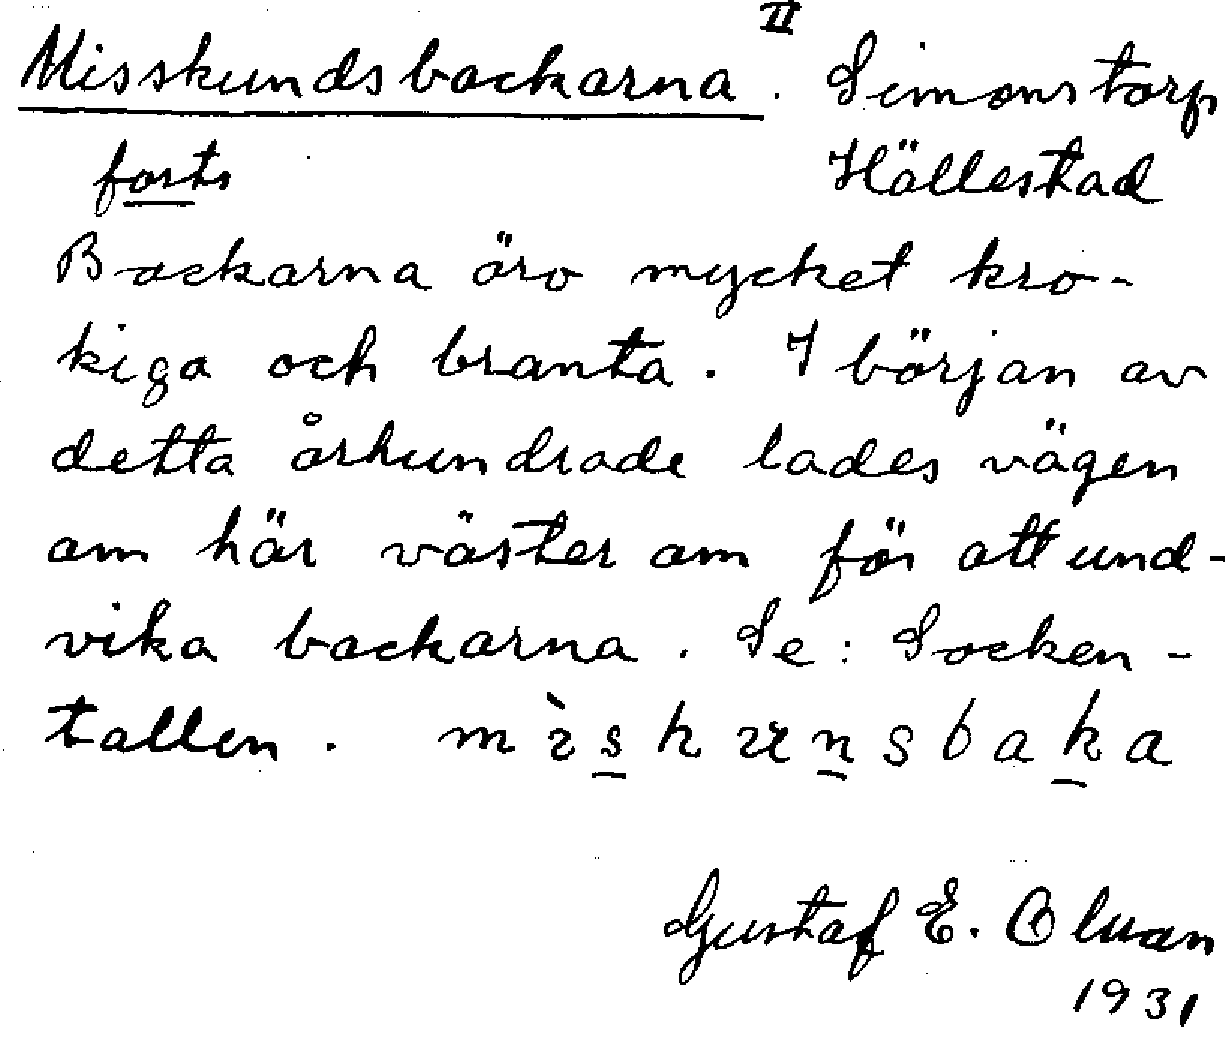 II
Misskundsbackarna. Simonstorp
forts Hällestad
Backarna äro mycket kro-
kiga och branta. I början av
detta århundrade lades vägen
om här väster om för att und-
vika backarna. Se: Socken-
tallen. mìskunsbaka
Gustaf E. Olsson
1931